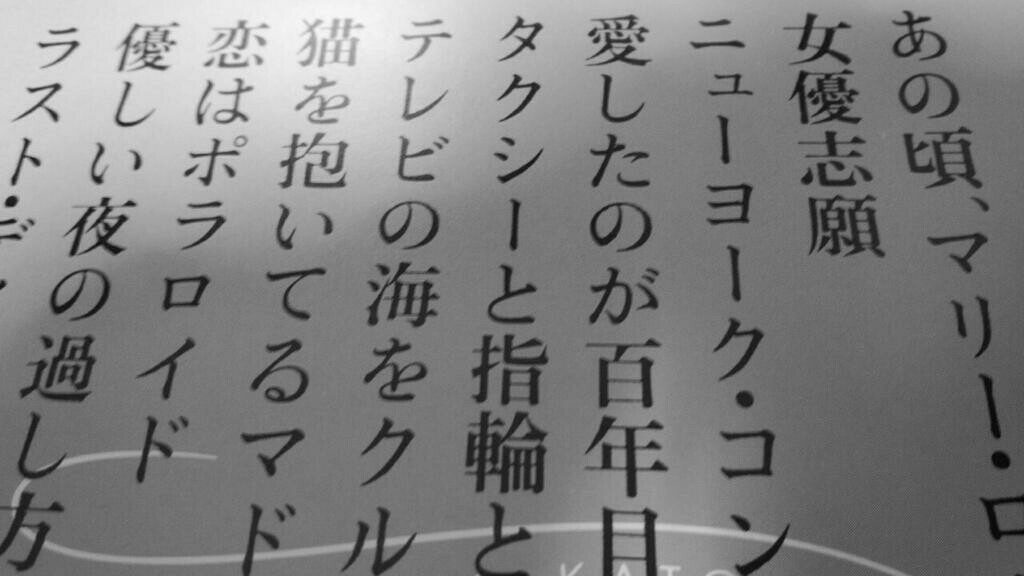 あの頃、マリー・ロ
女優志願
ニューヨーク・コン
愛したのが百年目
タクシーと指輪と
テレビの海をクル
猫を抱いてるマド
恋はポラロイド
優しい夜の過し方
ラスト・デ
KATO